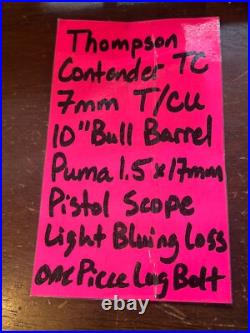 Thompson
Contender TC
7mm T/CU
10" Bull Barrel
Puma 1.5x17mm
Pistol Scope
Light Bluing Loss
one Piece Lug Bolt
thumbimg.com